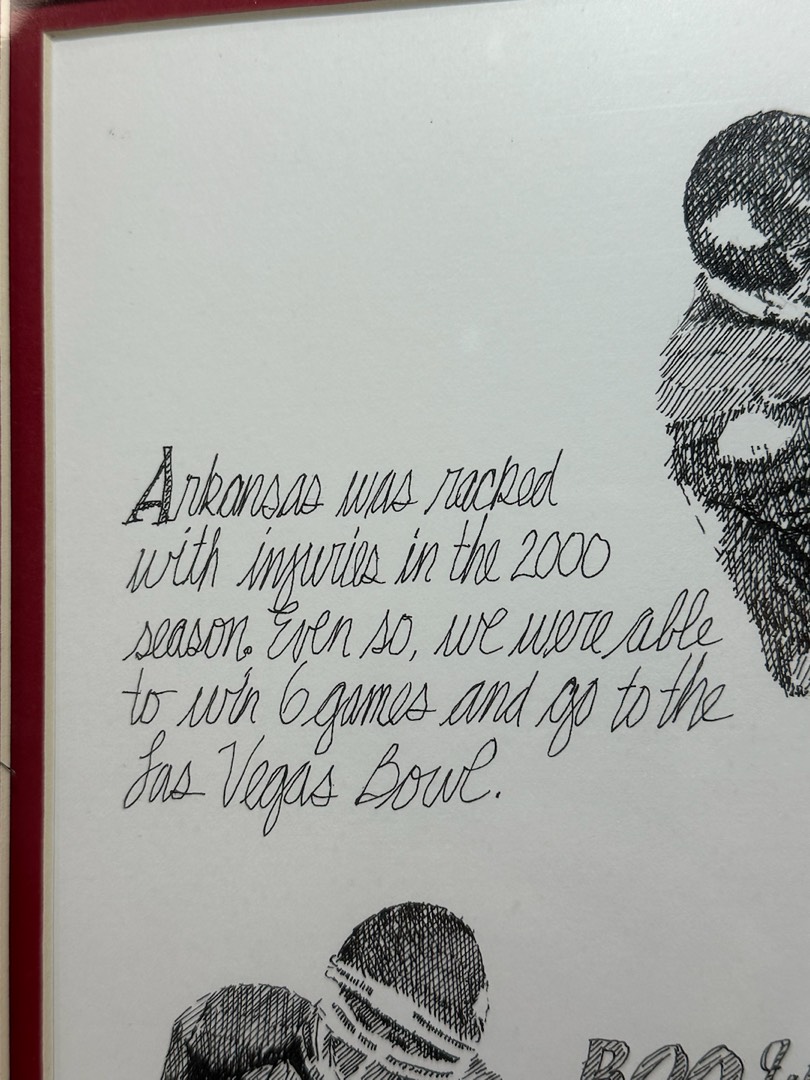 Arkansas was racked
with injuries in the 2000
season. Even so, we were able
to win 6 games and go to the
Las Vegas Bowl.